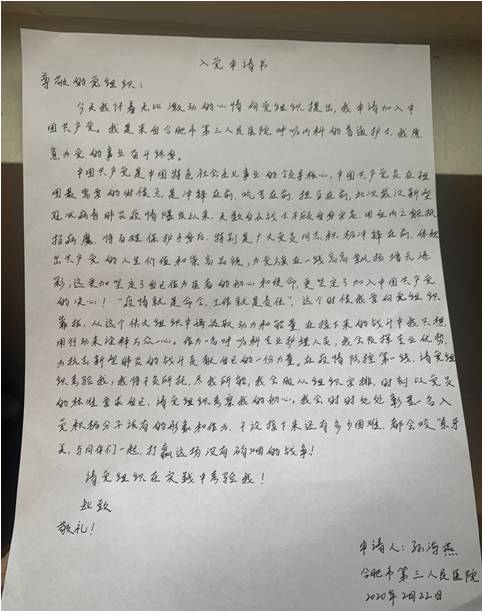 入党申请书
尊敬的党组织：
今天我怀着无比激动的心情向党组织提出，我申请加入中
国共产党。我是来自合肥市第三人民医院呼吸内科的普通护士，我愿
意为党的事业奋斗终身。
中国共产党是中国特色社会主义事业的领导核心，中国共产党员在祖
国最需要的时候总是冲锋在前，吃苦在前，担当在前，此次武汉新型
冠状病毒肺炎疫情爆发以来，无数白衣战士不顾自身安危，用血肉之躯抵
挡病魔，将百姓保护于身后，特别是广大党员同志积极冲锋在前，体现
出共产党的人生价值和崇高品德，为党旗在一线高高飘扬增光添
彩，这更加坚定了自己作为医者的初心和使命，更坚定了加入中国共产党
的决心！“疫情就是命令，工作就是责任”，这个时候我要向党组织
靠拢，从这个伟大组织中汲取动力和能量，在接下来的战斗中我只想
用行动来诠释万众一心。作为一名呼吸科专业护理人员，我会发挥专业优势，
为抗击新型肺炎的战斗贡献自己的一份力量。在疫情防控第一线，请党组
织考验我，我将不负所托，尽我所能，我会服从组织安排，时刻以党员
的标准要求自己，请党组织考察我的初心，我会时时处处彰显一名入
党积极分子该有的形象和作为，不论接下来还有多少困难，都会咬紧牙
关，与同伴们一起，打赢这场没有硝烟的战争！
请党组织在实践中考验我！
此致
敬礼！
申请人：孙海燕
合肥市第三人民医院
2020年2月22日